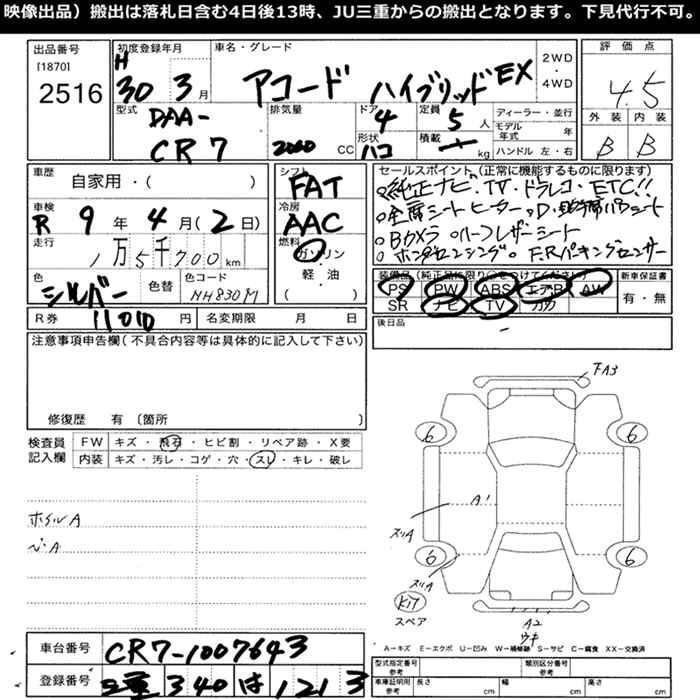 映像出品）搬出は落札日含む4日後13時、JU三重からの搬出となります。下見代行不可。
出品番号
[1870]
2516
初度登録年月
H
30 3月
車名・グレード
アコード ハイブリッド EX
2WD
・
4WD
評価点
4.5
外装 内装
B B
型式
DAA-
CR7
排気量
2000 CC
ドア
4
形状
ハコ
定員
5 人
積載
kg
ディーラー・並行
モデル年式 年
ハンドル 左・右
車歴
自家用・( )
車検
R 9 年 4 月 ( 2 日)
走行
1万5千700km
色
シルバー
色替
色コード
NH830M
R券
11010 円
名変期限 月 日
シフト
FAT
冷房
AAC
燃料
ガソリン
・
軽・油
( )
セールスポイント(正常に機能するものに限ります)
純正ナビ・TV・ドラレコ・ETC!!
全席シートヒーター。D・助手席パワーシート
Bカメラ ハーフレザーシート
ホンダセンシング。F・Rパーキングセンサー
装備品(純正品に限り○をつけてください)
PS PW ABS エアB AW
SR ナビ TV カワ
新車保証書
有・無
後日品
注意事項申告欄(不具合内容等は具体的に記入して下さい)
修復歴 有 〔箇所 〕
検査員記入欄
FW キズ・飛石・ヒビ割・リペア跡・X要
内装 キズ・汚レ・コゲ・穴・スレ・キレ・破レ
ホイルA
ペA
下A3
6 6
A1
スリA
6 6
スリA
スペア
A2
ウキ
A－キズ E－エクボ U－凹ミ W－補修跡 S－サビ C－腐食 XX－交換済
車台番号
CR7-1007643
登録番号
三重 340 は 1213
型式指定番号 参考
類別区分番号 参考
車庫証明用 参考 長さ cm 幅 cm 高さ cm